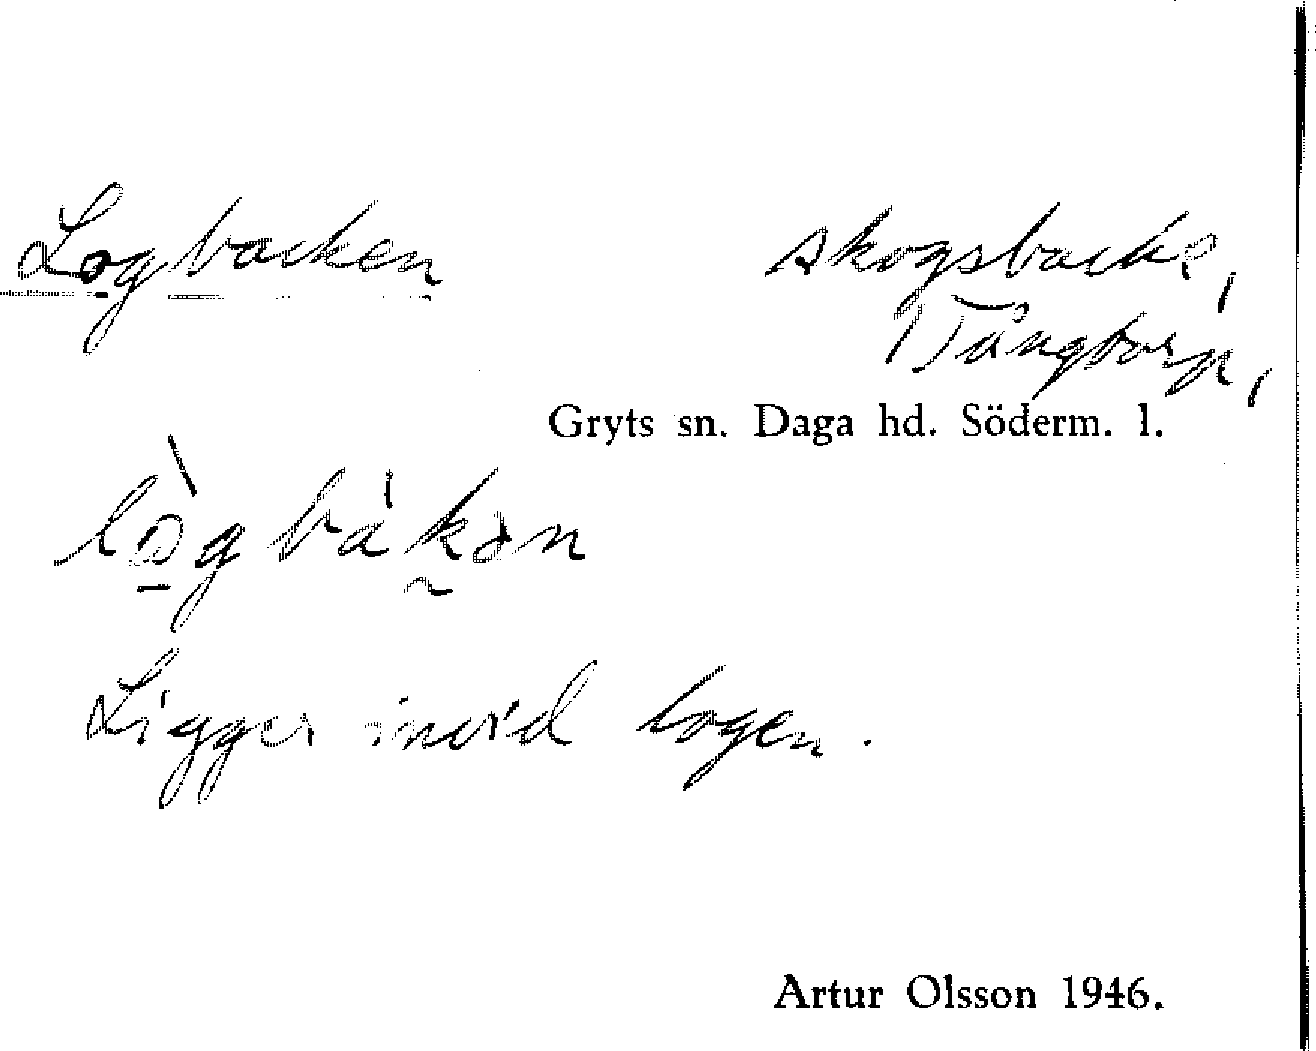 Logbacken
skogsbacke,
Tångtorp,
Gryts sn. Daga hd. Söderm. l.
lògbákən
Ligger invid logen.
Artur Olsson 1946.